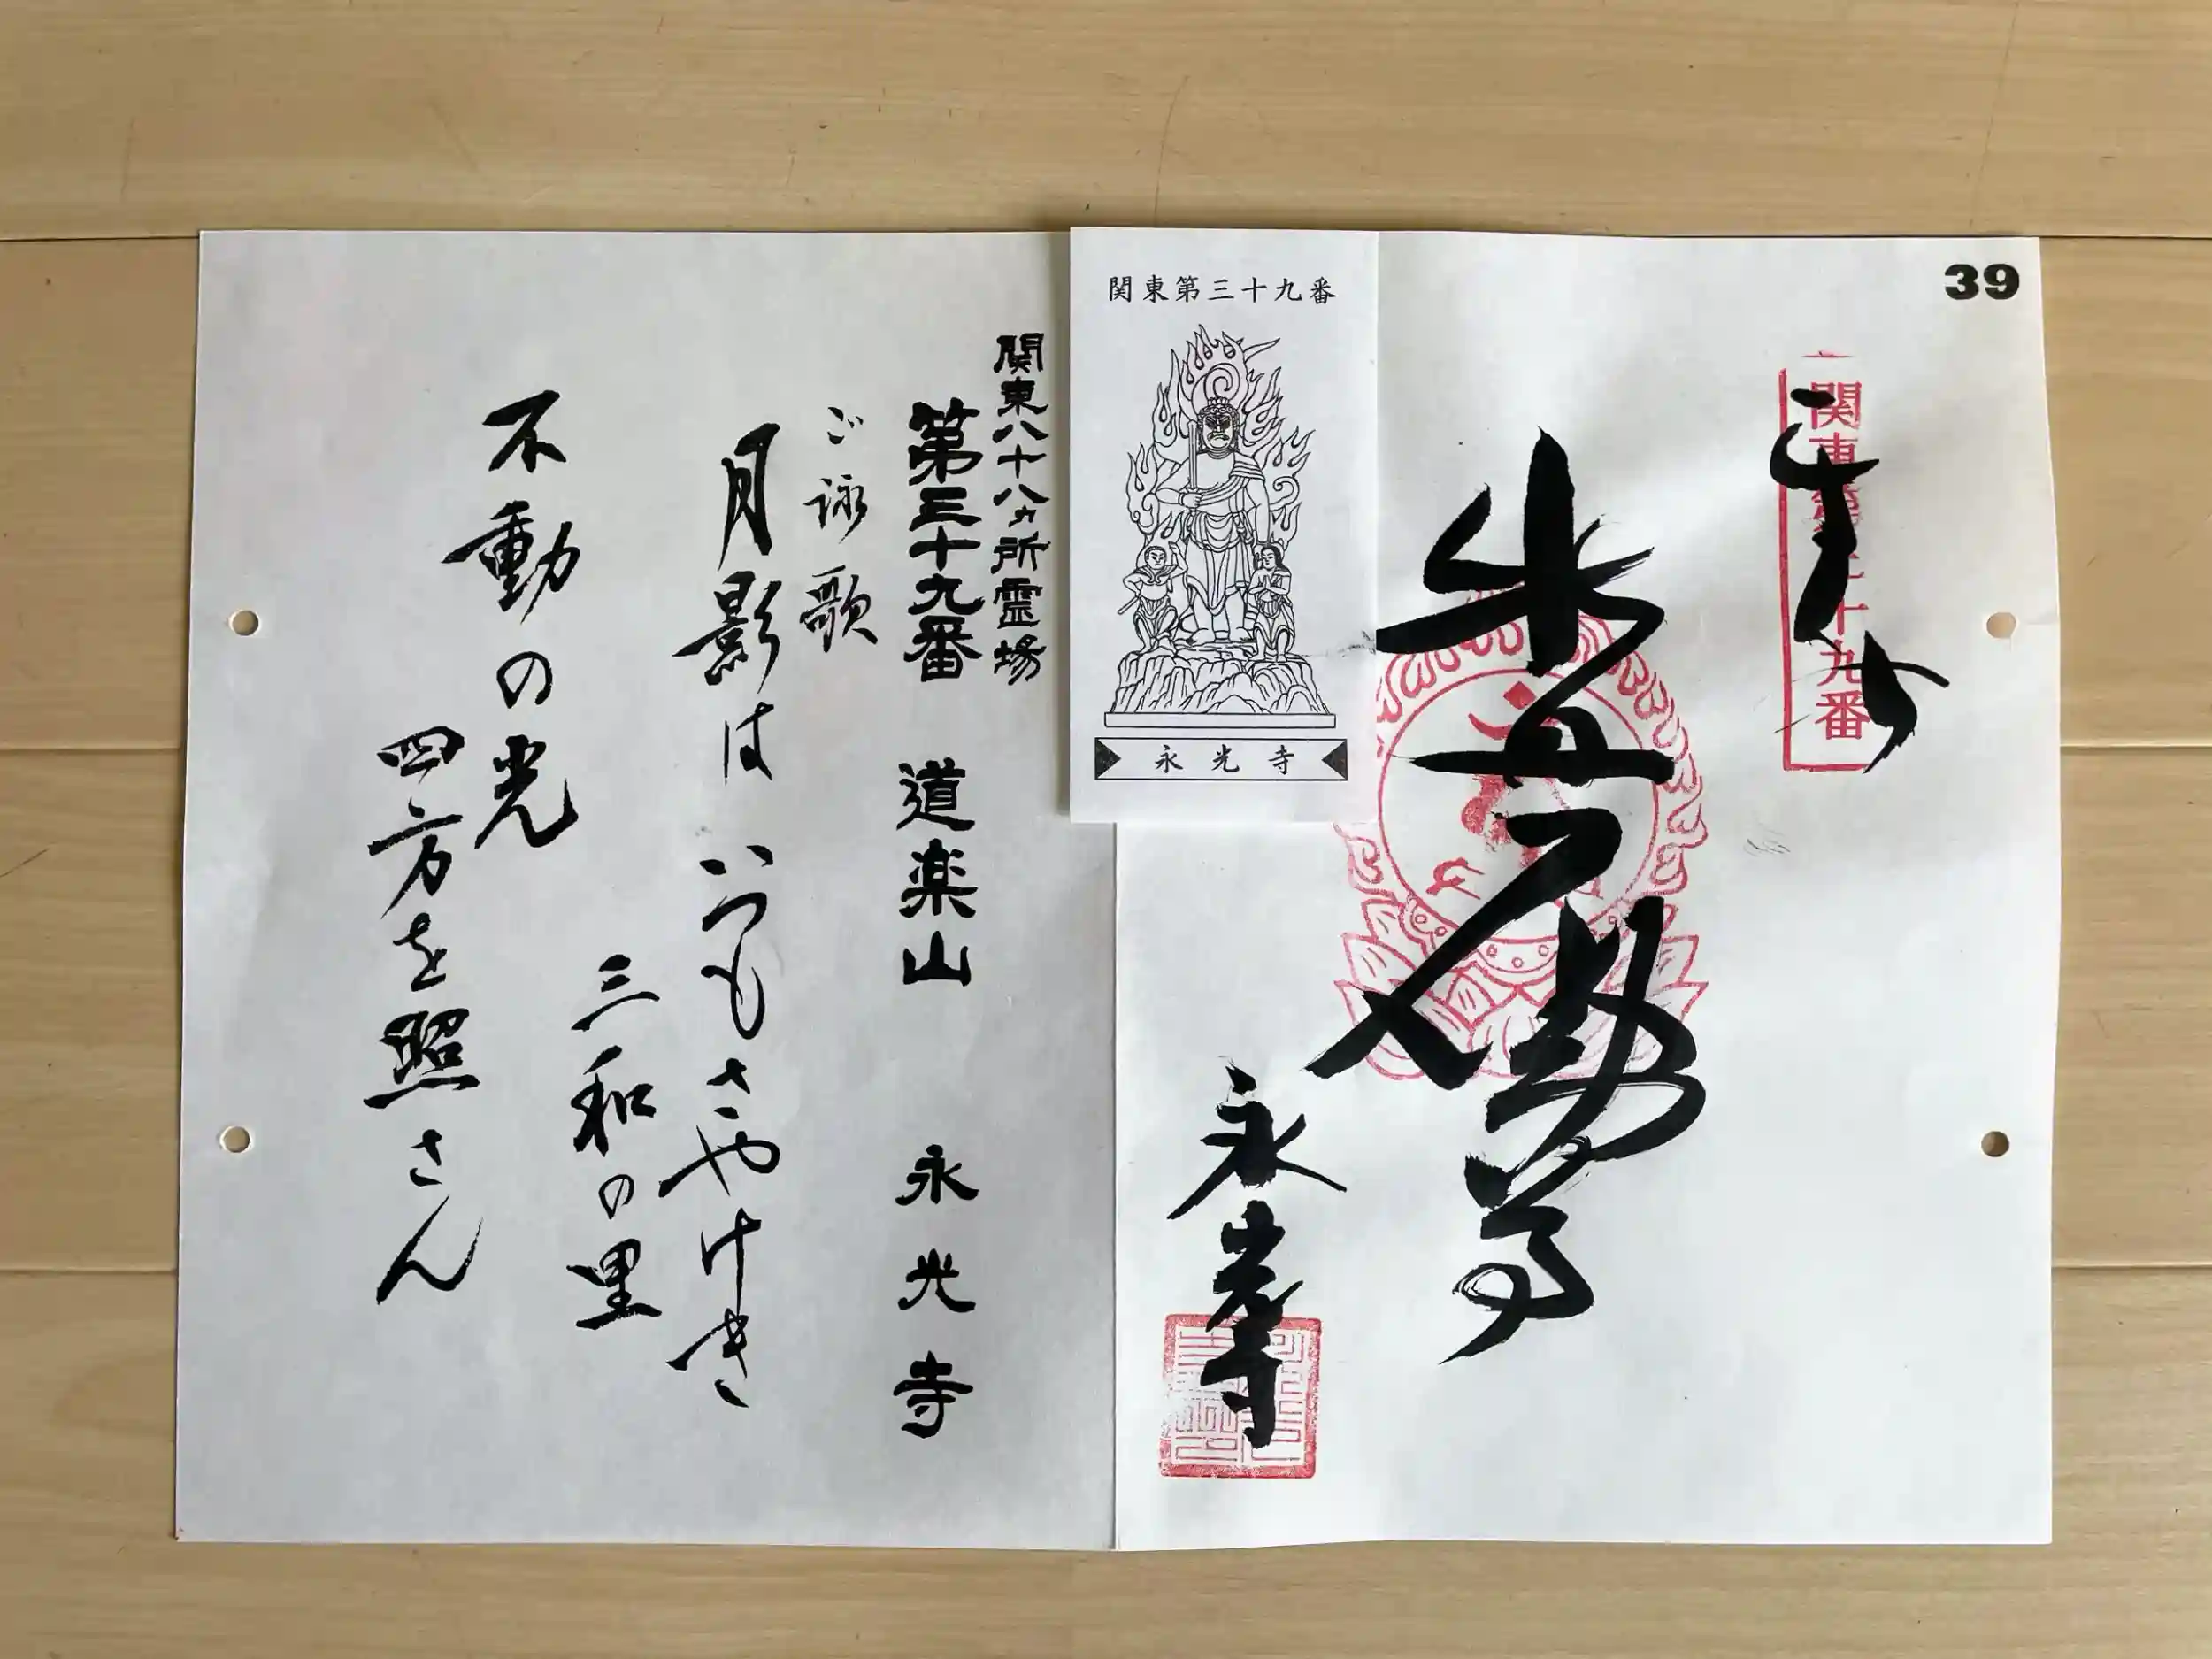 39
関東第三十九番
奉拝
永光寺
関東第三十九番
永光寺
関東八十八ヵ所霊場
第三十九番 道楽山 永光寺
ご詠歌
月影は いつもさやけき
三和の里
不動の光
四方を照さん